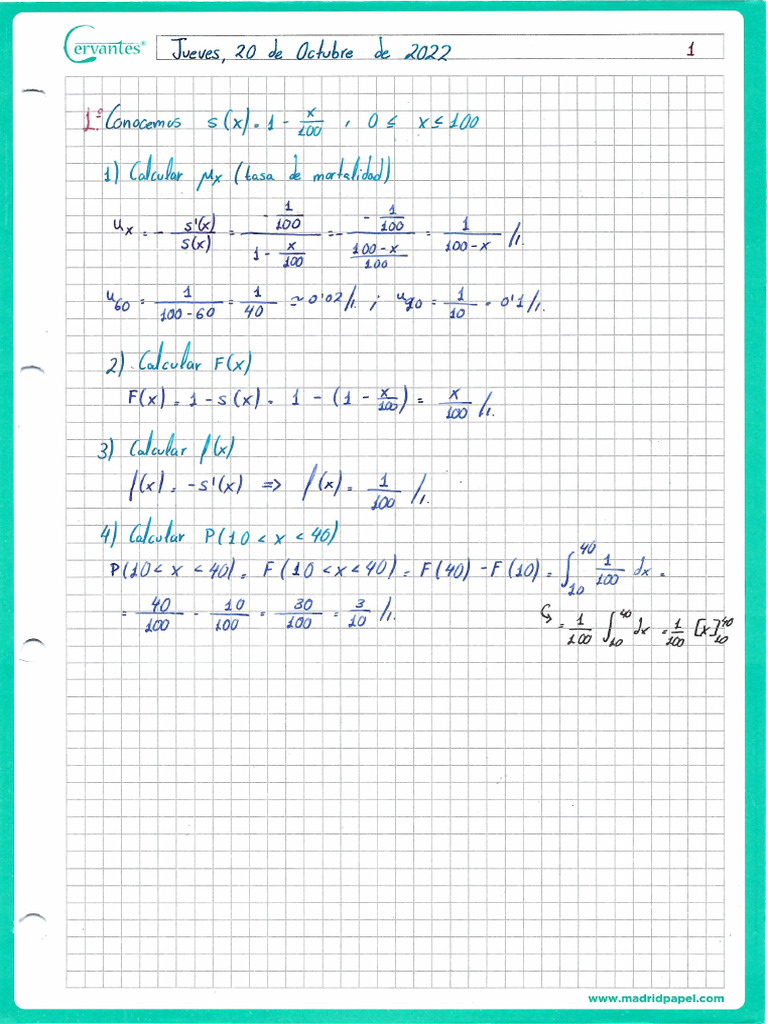 Cervantes® Jueves, 20 de Octubre de 2022 1
1.º Conocemos s(x) = 1 - x/100 , 0 ≤ x ≤ 100
1) Calcular μx (tasa de mortalidad)
ux = - s'(x)/s(x) = (- 1/100)/(1 - x/100) = - (- 1/100)/((100-x)/100) = 1/(100-x) //.
u60 = 1/(100-60) = 1/40 ≃ 0'02 //. ; u90 = 1/10 = 0'1 //.
2). Calcular F(x)
F(x) = 1 - s(x) = 1 - (1 - x/100) = x/100 //.
3) Calcular f(x)
f(x) = -s'(x) => f(x) = 1/100 //.
4) Calcular P(10 < x < 40)
P(10 < x < 40) = F(10 < x < 40) = F(40) - F(10) = ∫₁₀⁴⁰ 1/100 dx =
= 40/100 - 10/100 = 30/100 = 3/10 //.
↳ = 1/100 ∫₁₀⁴⁰ dx = 1/100 [x]₁₀⁴⁰
www.madridpapel.com